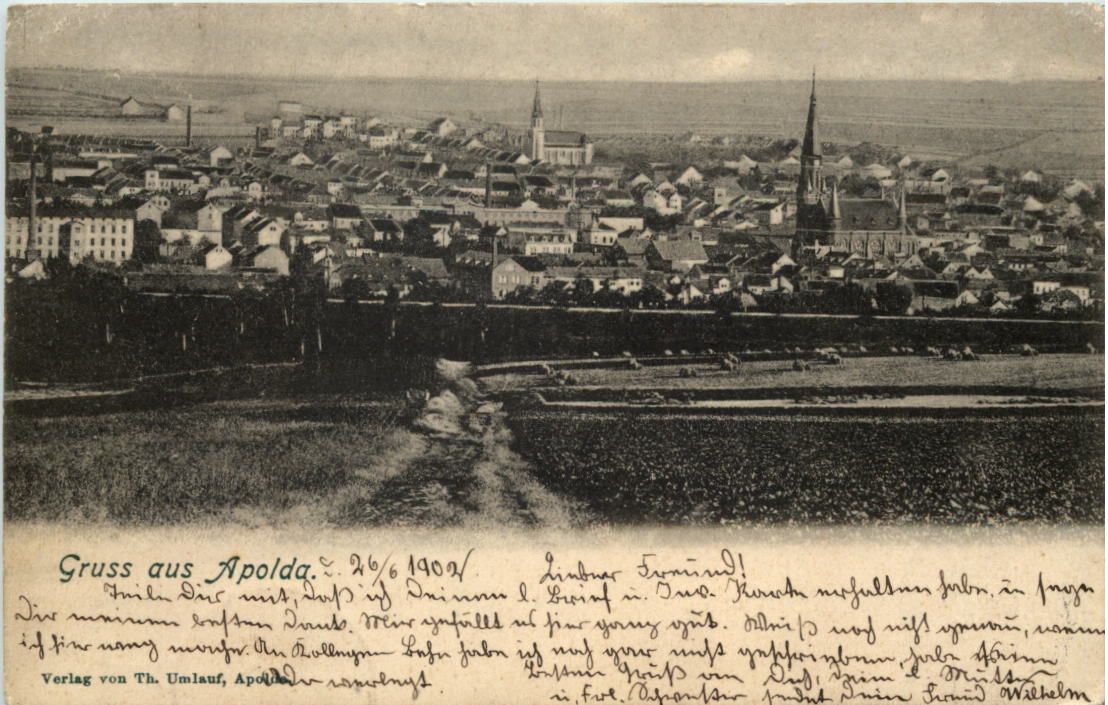 Gruss aus Apolda. d. 26/6 1902.
Lieber Freund!
Teile Dir mit, daß ich Deinen l. Brief u. Karte erhalten habe, u. sage
Dir meinen besten Dank. Mir gefällt es hier ganz gut. Weiß noch nicht genau, wenn
ich hier weg mache. An Kollegen Behn habe ich noch gar nicht geschrieben, habe seine
Adr verlegt
Besten Gruß an Dich, Deine l. Mutter
u. Frl. Schwester sendet Dein Freund Wilhelm
Verlag von Th. Umlauf, Apolda.